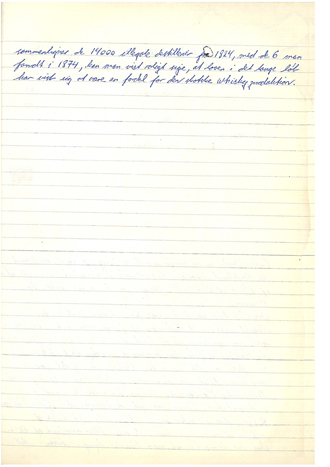 sammenligner de 14000 illegale destillerier på 1824, med de 6 man
fandt i 1874, kan man vist roligt sige, at loven i det lange løb
har vist sig at være en fordel for den skotske whisky produktion.